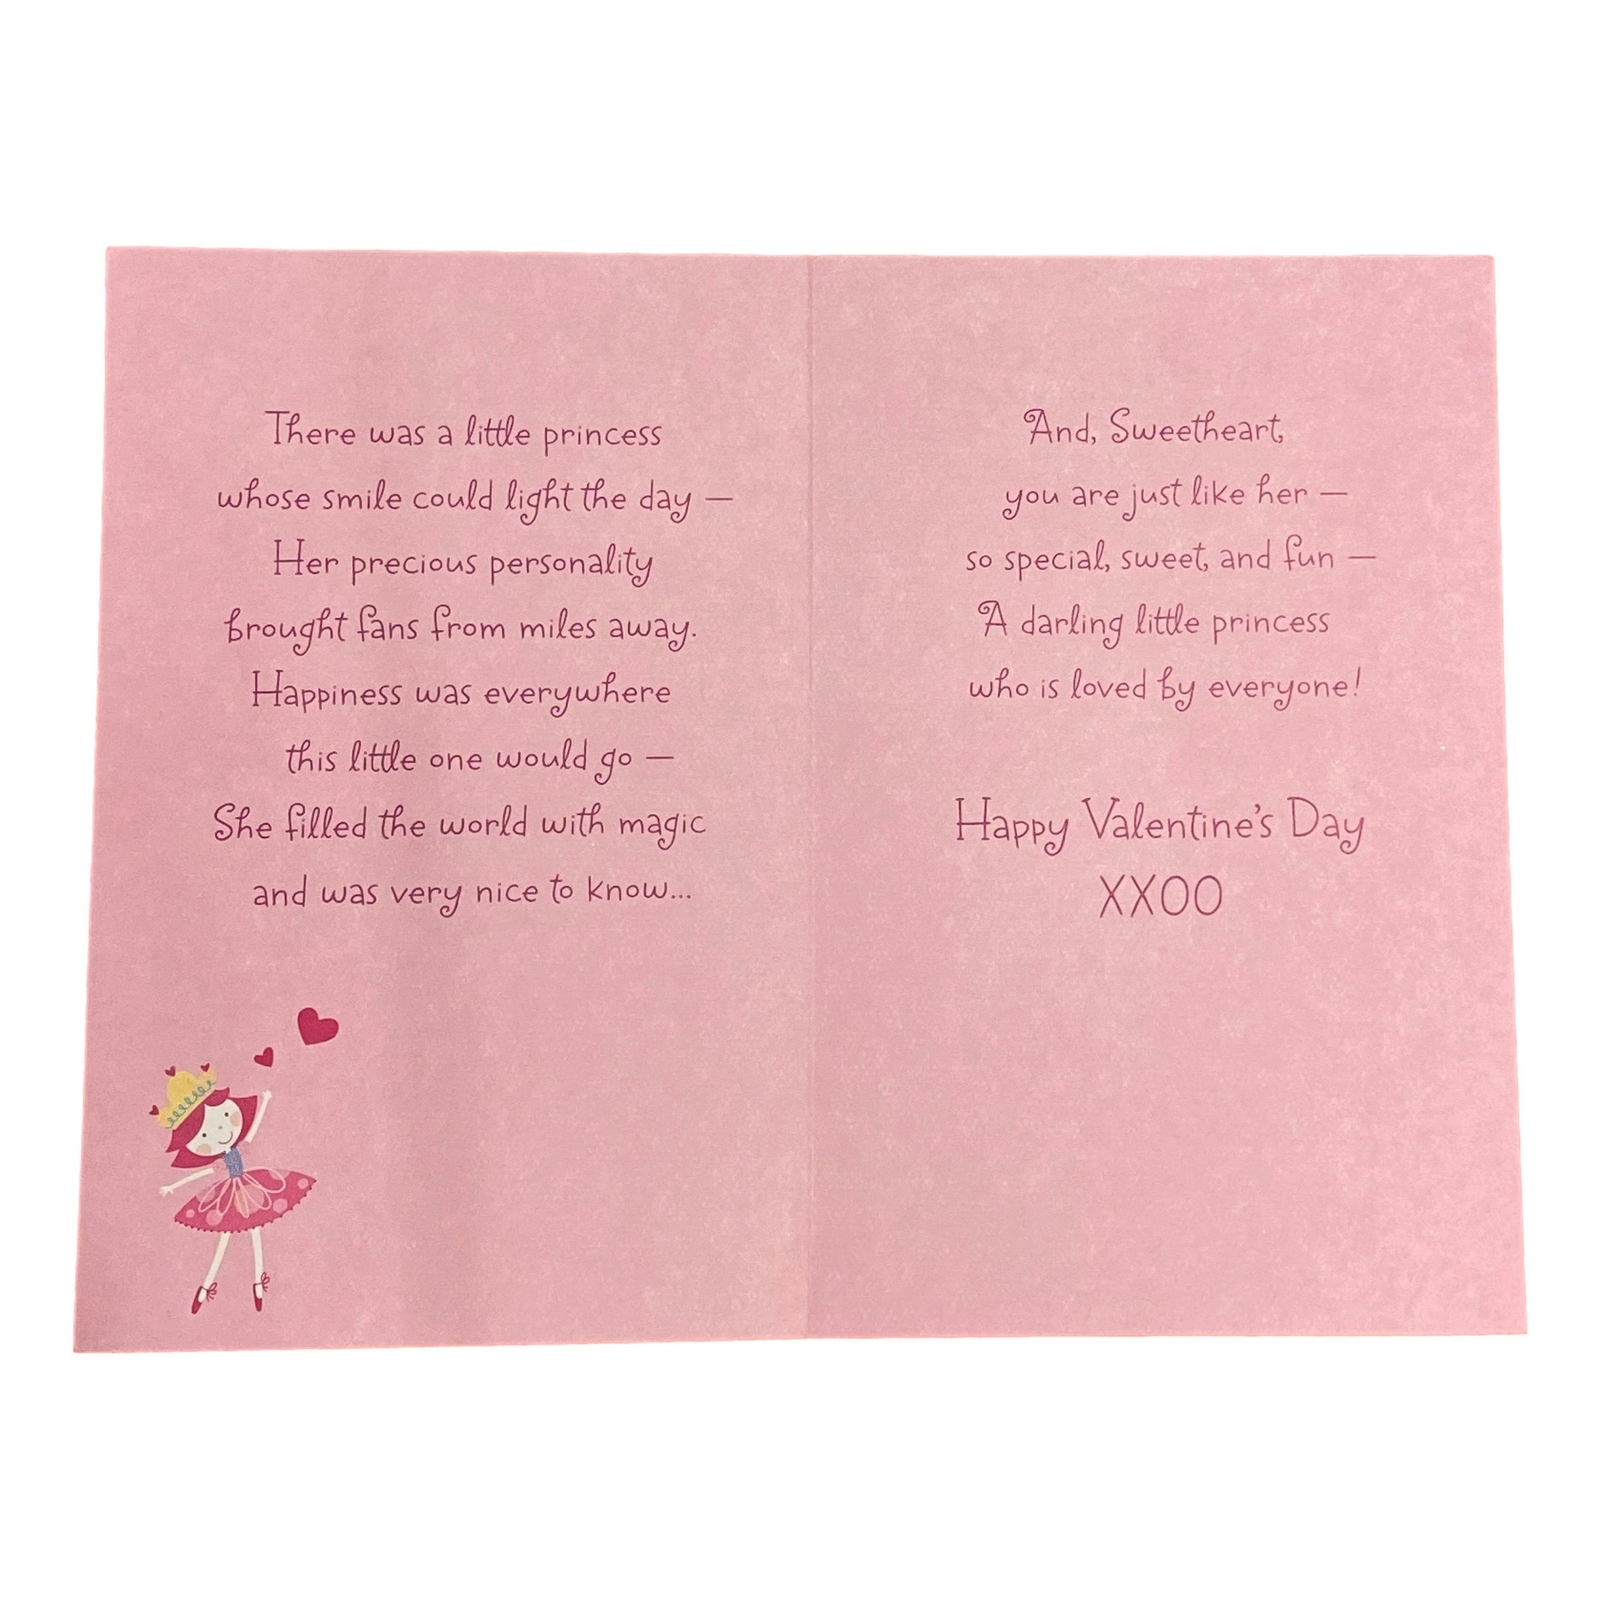 There was a little princess
whose smile could light the day —
Her precious personality
brought fans from miles away.
Happiness was everywhere
this little one would go —
She filled the world with magic
and was very nice to know...
And, Sweetheart,
you are just like her —
so special, sweet, and fun —
A darling little princess
who is loved by everyone!
Happy Valentine's Day
XXOO